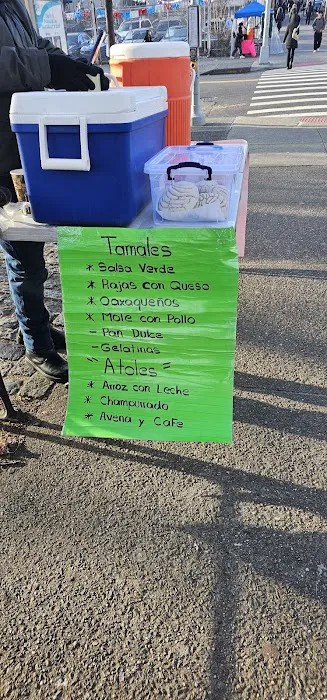 Tamales
* Salsa Verde
* Rajas con Queso
* Oaxaqueños
* Mole con Pollo
- Pan Dulce
- Gelatinas
" Atoles "
* Arroz con Leche
* Champurrado
* Avena y Cafe